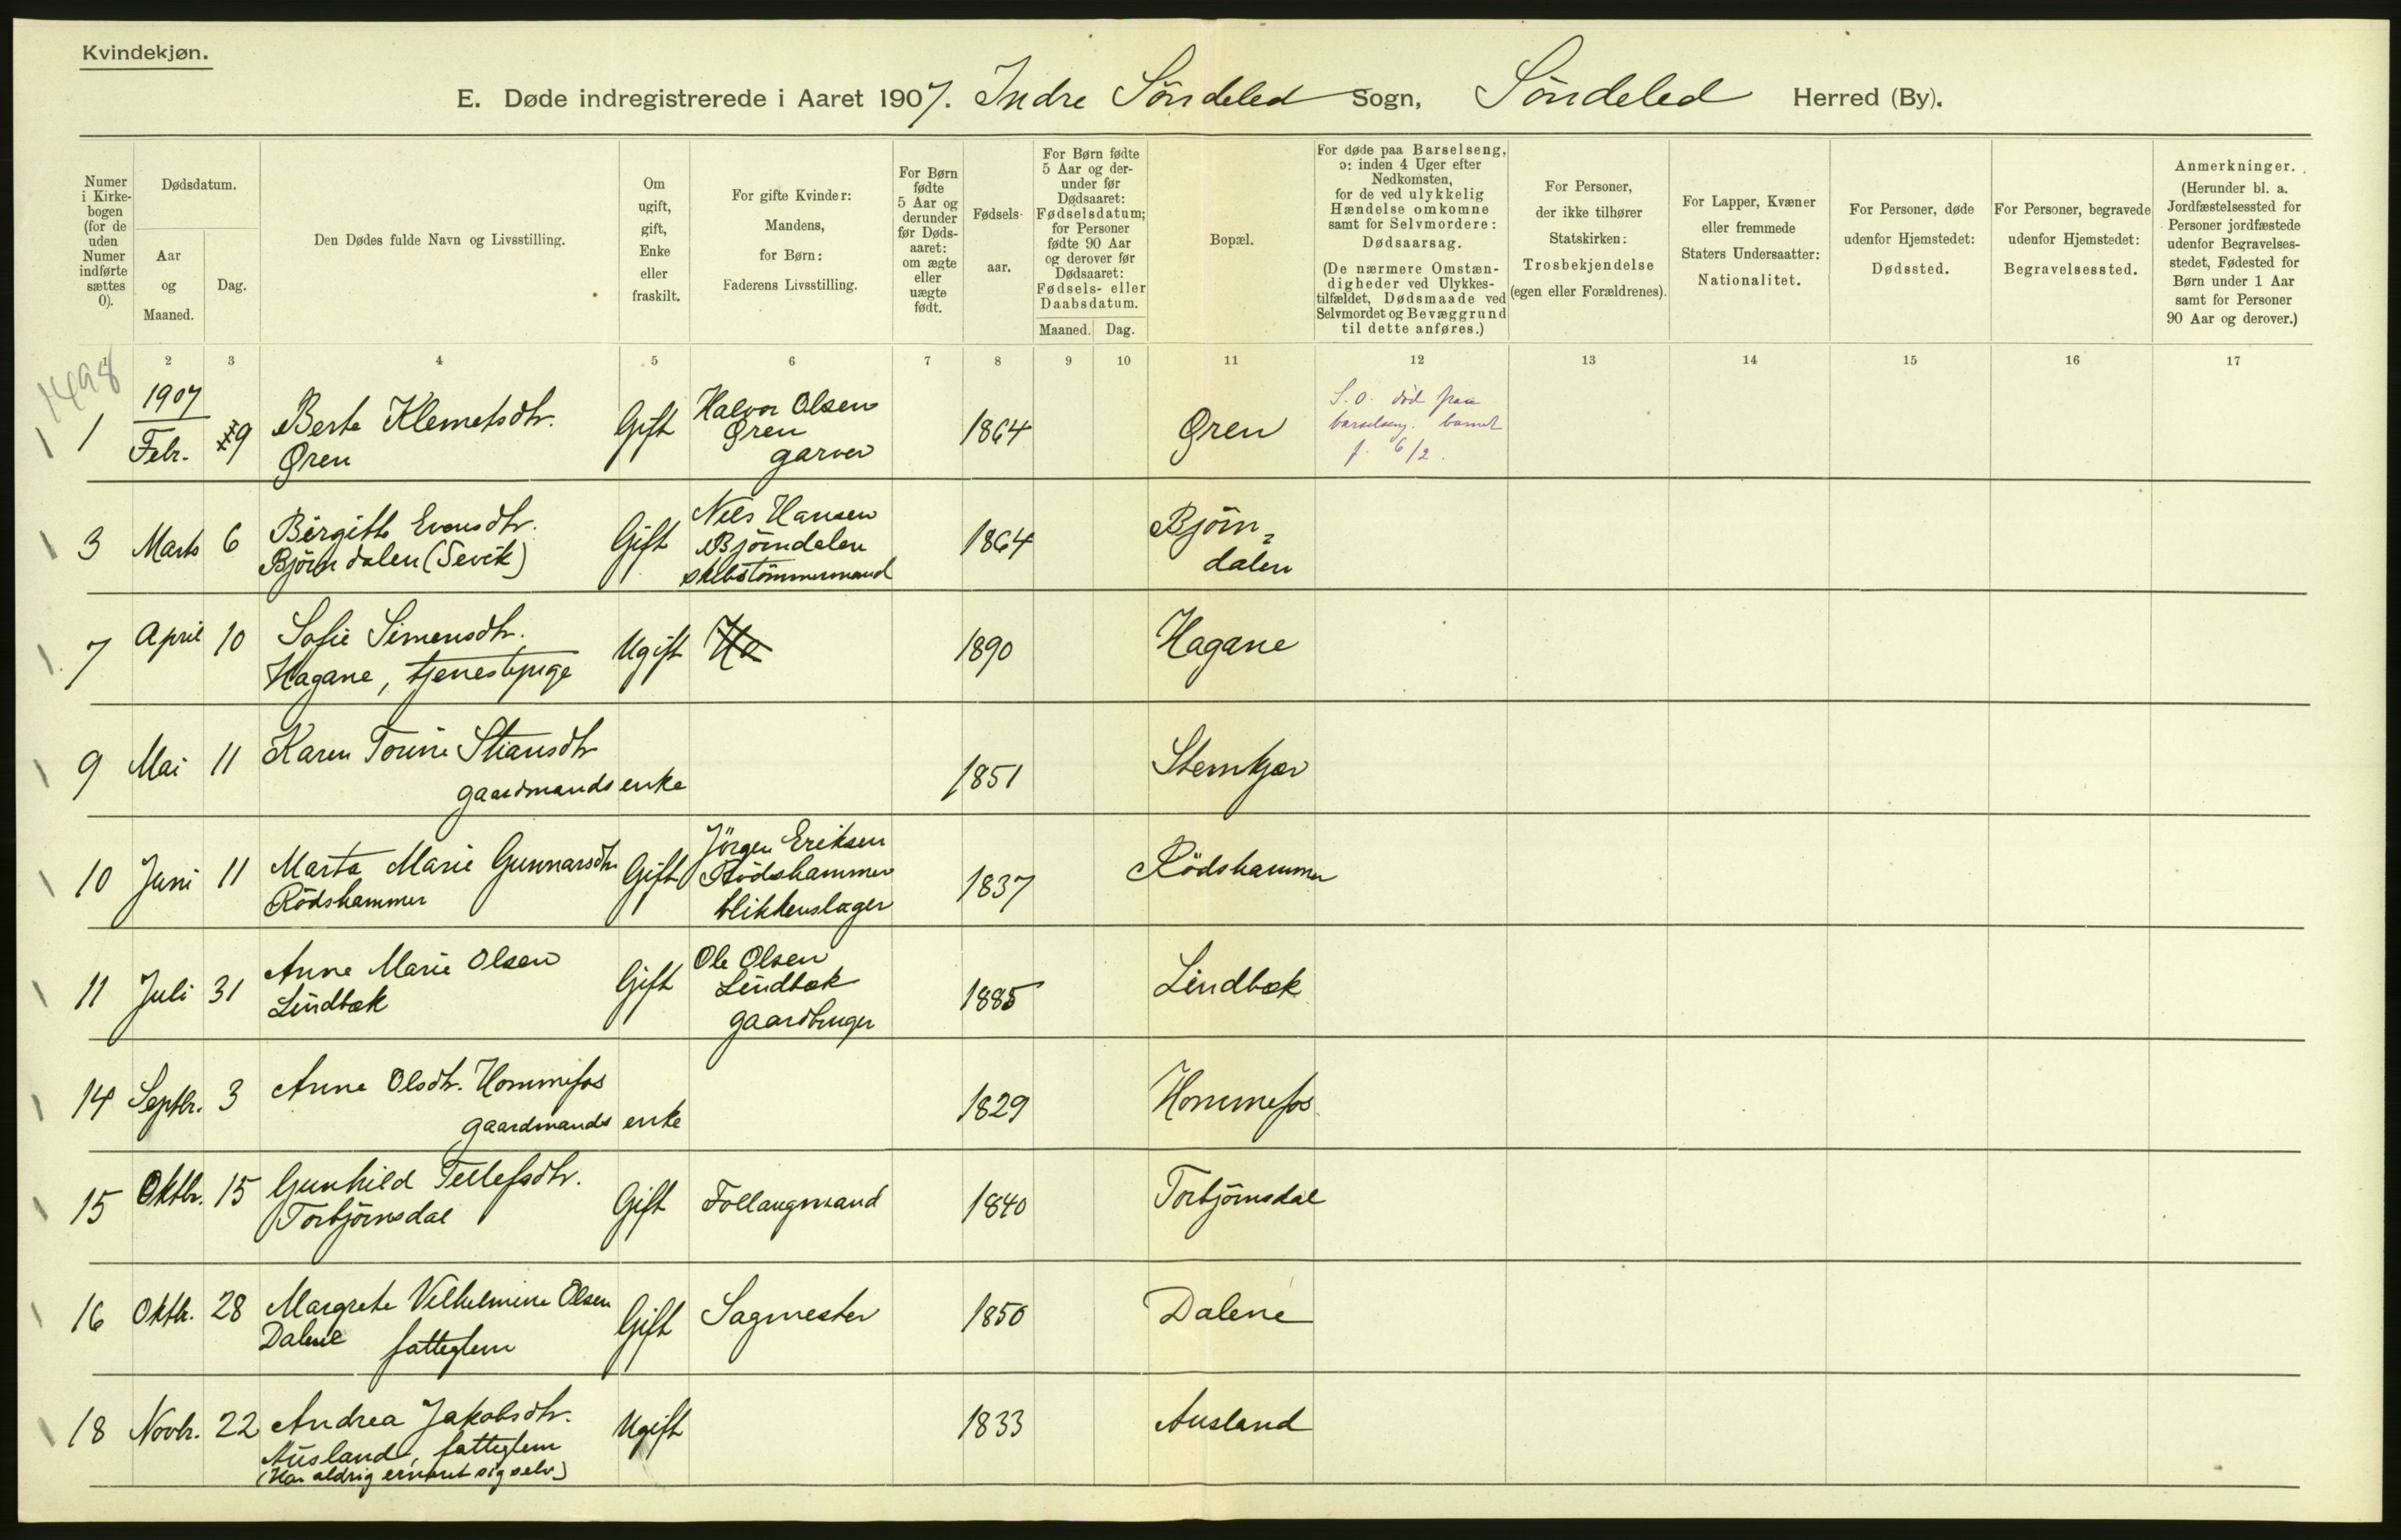 Kvindekjøn.
E. Døde indregistrerede i Aaret 1907. Indre Söndeled Sogn, Söndeled Herred (By).
Numer i Kirke-bogen (for de uden Numer indførte sættes 0).
Dødsdatum.
Aar og Maaned.
Dag.
Den Dødes fulde Navn og Livsstilling.
Om ugift, gift, Enke eller fraskilt.
For gifte Kvinder: Mandens, for Børn: Faderens Livsstilling.
For Børn fødte 5 Aar og derunder før Døds-aaret: om ægte eller uægte født.
Fødsels-aar.
For Børn fødte 5 Aar og der-under før Dødsaaret: Fødselsdatum; for Personer fødte 90 Aar og derover før Dødsaaret: Fødsels- eller Daabsdatum.
Maaned. Dag.
Bopæl.
For døde paa Barselseng, ɔ: inden 4 Uger efter Nedkomsten, for de ved ulykkelig Hændelse omkomne samt for Selvmordere: Dødsaarsag.
(De nærmere Omstæn-digheder ved Ulykkes-tilfældet, Dødsmaade ved Selvmordet og Bevæggrund til dette anføres.)
For Personer, der ikke tilhører Statskirken: Trosbekjendelse (egen eller Forældrenes).
For Lapper, Kvæner eller fremmede Staters Undersaatter: Nationalitet.
For Personer, døde udenfor Hjemstedet: Dødssted.
For Personer, begravede udenfor Hjemstedet: Begravelsessted.
Anmerkninger. (Herunder bl. a. Jordfæstelsessted for Personer jordfæstede udenfor Begravelses-stedet, Fødested for Børn under 1 Aar samt for Personer 90 Aar og derover.)
1 2 3 4 5 6 7 8 9 10 11 12 13 14 15 16 17
1498
1907
1 Febr. 9 Berte Klemetsdtr. Øren Gift Halvor Olsen Øren garver 1864 Øren S.O. död paa barselseng. barnet f. 6/2.
3 Marts 6 Birgitte Evensdtr. Björndalen (Sevik) Gift Niels Hansen Björndalen skibstömmermand 1864 Björn-dalen
7 April 10 Sofie Simensdtr. Hagane, tjenestepige Ugift Ha 1890 Hagane
9 Mai 11 Karen Tomine Stiansdtr gaardmands enke 1851 Stemkjær
10 Juni 11 Marta Marie Gunnarsdtr Rödshammer Gift Jörgen Eriksen Rödshammer blikkenslager 1837 Rödshammer
11 Juli 31 Anne Marie Olsen Lindbæk Gift Ole Olsen Lindbæk gaardbruger 1885 Lindbæk
14 Septbr. 3 Anne Olsdtr. Hommefos gaardmands enke 1829 Hommefos
15 Oktbr. 15 Gunhild Tellefsdtr. Torbjörnsdal Gift Follaugsmand 1840 Torbjörnsdal
16 Oktb. 28 Margrete Vilhelmine Olsen Dalene fattiglem Gift Sagmester 1850 Dalene
18 Novbr. 22 Andrea Jakobsdtr. Ausland, fattiglem (Har aldrig ernæret sig selv) Ugift 1833 Ausland